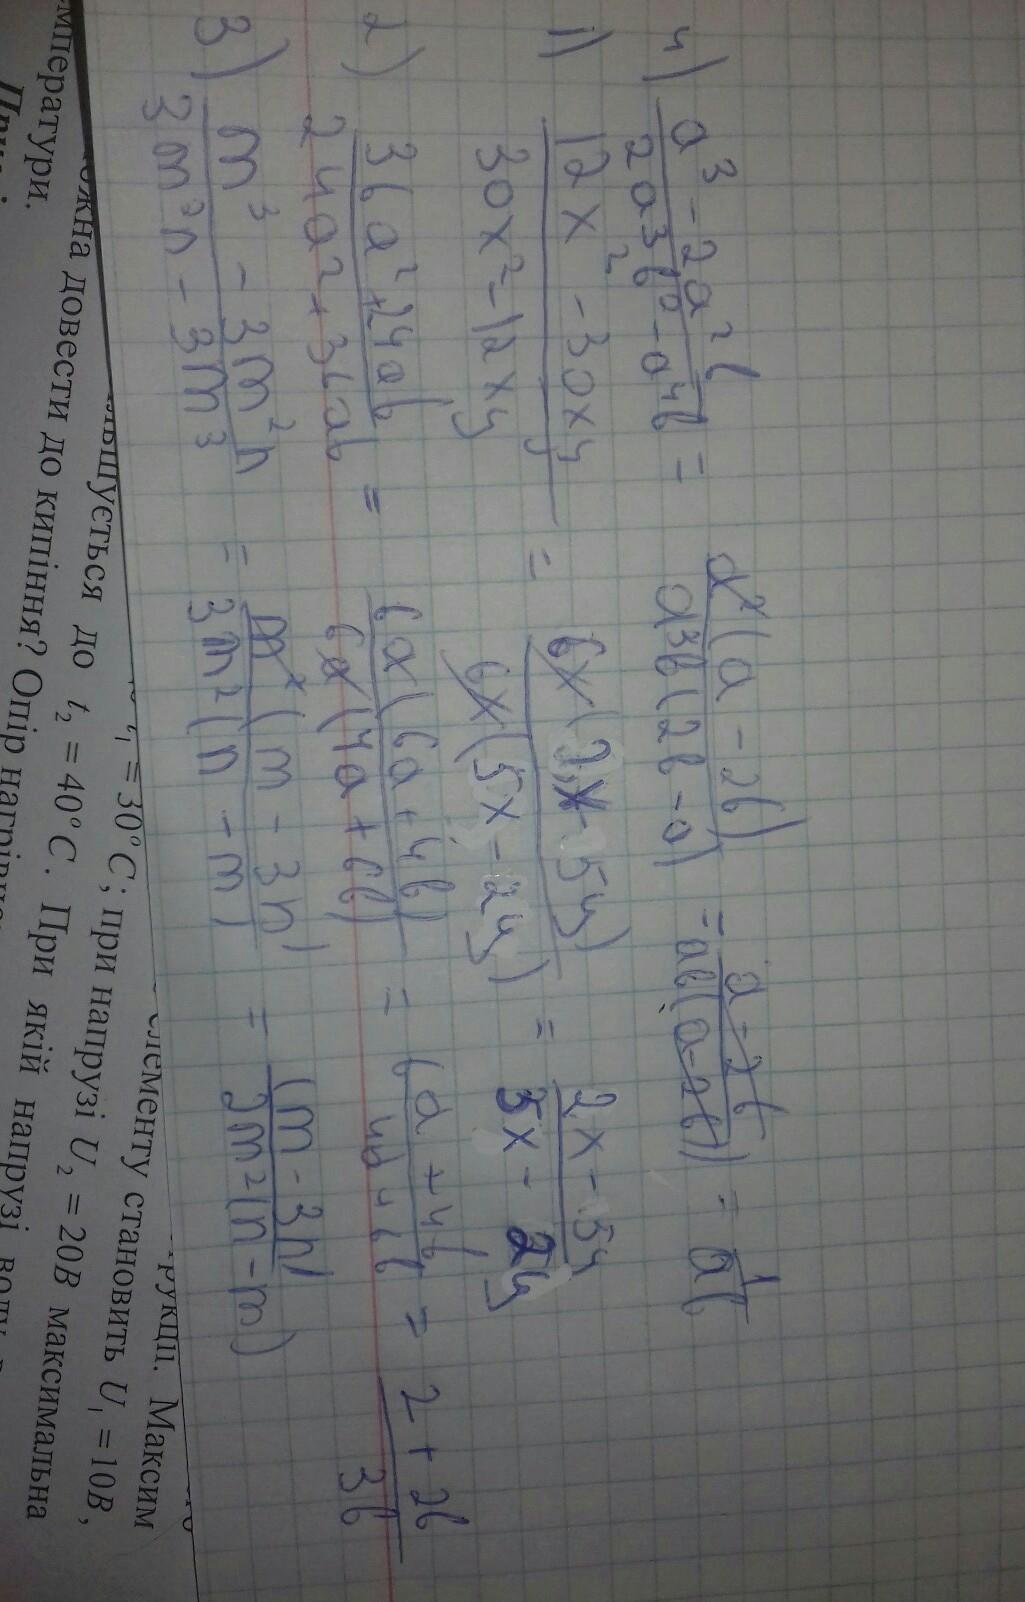 4) (a³ - 2a²b)/(2a³b² - a⁴b) = a²(a - 2b)/(a³b(2b - a)) = (a - 2b)/(ab(a - 2b)) = 1/(ab)
1) (12x² - 30xy)/(30x² - 12xy) = 6x(2x - 5y)/(6x(5x - 2y)) = (2x - 5y)/(5x - 2y)
2) (36a² + 24ab)/(24a² + 36ab) = 6a(6a + 4b)/(6a(4a + 6b)) = (6a + 4b)/(4a + 6b) = (2 + 2b)/(3b)
3) (m³ - 3m²n)/(3m²n - 3m³) = m²(m - 3n)/(3m²(n - m)) = (m - 3n)/(3m²(n - m))
рукції. Максим
лементу становить U₁ = 10В,
ьшується до t₂ = 40°С; при напрузі U₂ = 20В максимальна
ожна довести до кипіння? Опір
При якій напрузі воду
мператури.